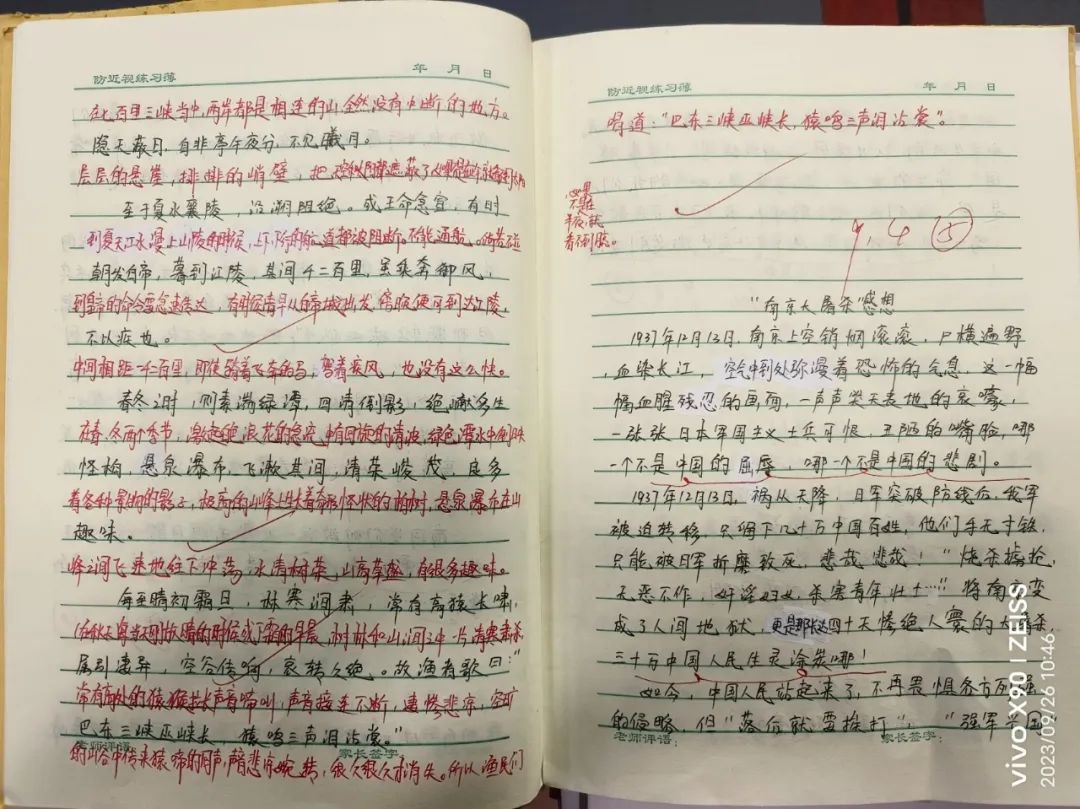 防近视练习薄 年 月 日
在七百里三峡当中,两岸都是相连的山,全然没有中断的地方。
隐天蔽日,自非亭午夜分,不见曦月。
层层的悬崖,排排的峭壁,把
至于夏水襄陵,沿溯阻绝。或王命急宣,有时
到夏天江水漫上山陵的时候,上下的航道都被阻断,不能通航。
朝发白帝,暮到江陵,其间千二百里,虽乘奔御风,
到皇帝的命令要急速传达,有时候清早从白帝城出发,傍晚便可到达江陵,
不以疾也。
中间相距一千二百里,即使骑着飞奔的马,驾着疾风,也没有这么快。
春冬之时,则素湍绿潭,回清倒影,绝巘多生
在春、冬两个季节,激起浪花的急流中有回旋的清波,绿色潭水中倒映
怪柏,悬泉瀑布,飞漱其间,清荣峻茂,良多
着各种景物的影子,极高的山峰上生长着奇形怪状的柏树,悬泉瀑布在山
趣味。
峰之间飞速地往下冲荡,水清树荣,山高草盛,有很多趣味。
每至晴初霜旦,林寒涧肃,常有高猿长啸,
在秋天,每当天刚放晴的时候或下霜的早晨,树林和山涧之中一片清寒肃杀,
属引凄异,空谷传响,哀转久绝。故渔者歌曰:"
常有高处的猿猴拉长声音啼叫,声音接连不断,凄惨悲凉,空旷
巴东三峡巫峡长,猿鸣三声泪沾裳。"
老师评语: 家长签字:
的山谷中传来猿啼的回声,声音悲凉婉转,很久很久才消失。所以渔民们
防近视练习薄 年 月 日
唱道:"巴东三峡巫峡长,猿鸣三声泪沾裳"。
如果
不是在
半夜,就
看不到月亮。
9.4 ⑤
"南京大屠杀"感想
1937年12月13日,南京上空销烟滚滚,尸横遍野
,血染长江,空气中到处弥漫着恐怖的气息,这一幅
幅血腥残忍的画面,一声声哭天表地的哀嚎,
一张张日本军国主义士兵可恨,丑陋的嘴脸,哪
一个不是中国的屈辱,哪一个不是中国的悲剧。
1937年12月13日,祸从天降,日军突破防线后,我军
被迫转移,只留下几十万中国百姓,他们手无寸铁,
只能被日军折磨致死,悲哉悲哉!"烧杀掳抢,
无恶不作,奸淫妇女,杀害青年壮士……"将南京变
成了人间地狱,更是那长达四十天惨绝人寰的大屠杀,
三十万中国人民生灵涂炭哪!
如今,中国人民站起来了,不再畏惧各方列强
的侵略,但"落后就要挨打","强军兴国
老师评语: 家长签字:
vivo X90 | ZEISS
2023/09/26 10:46